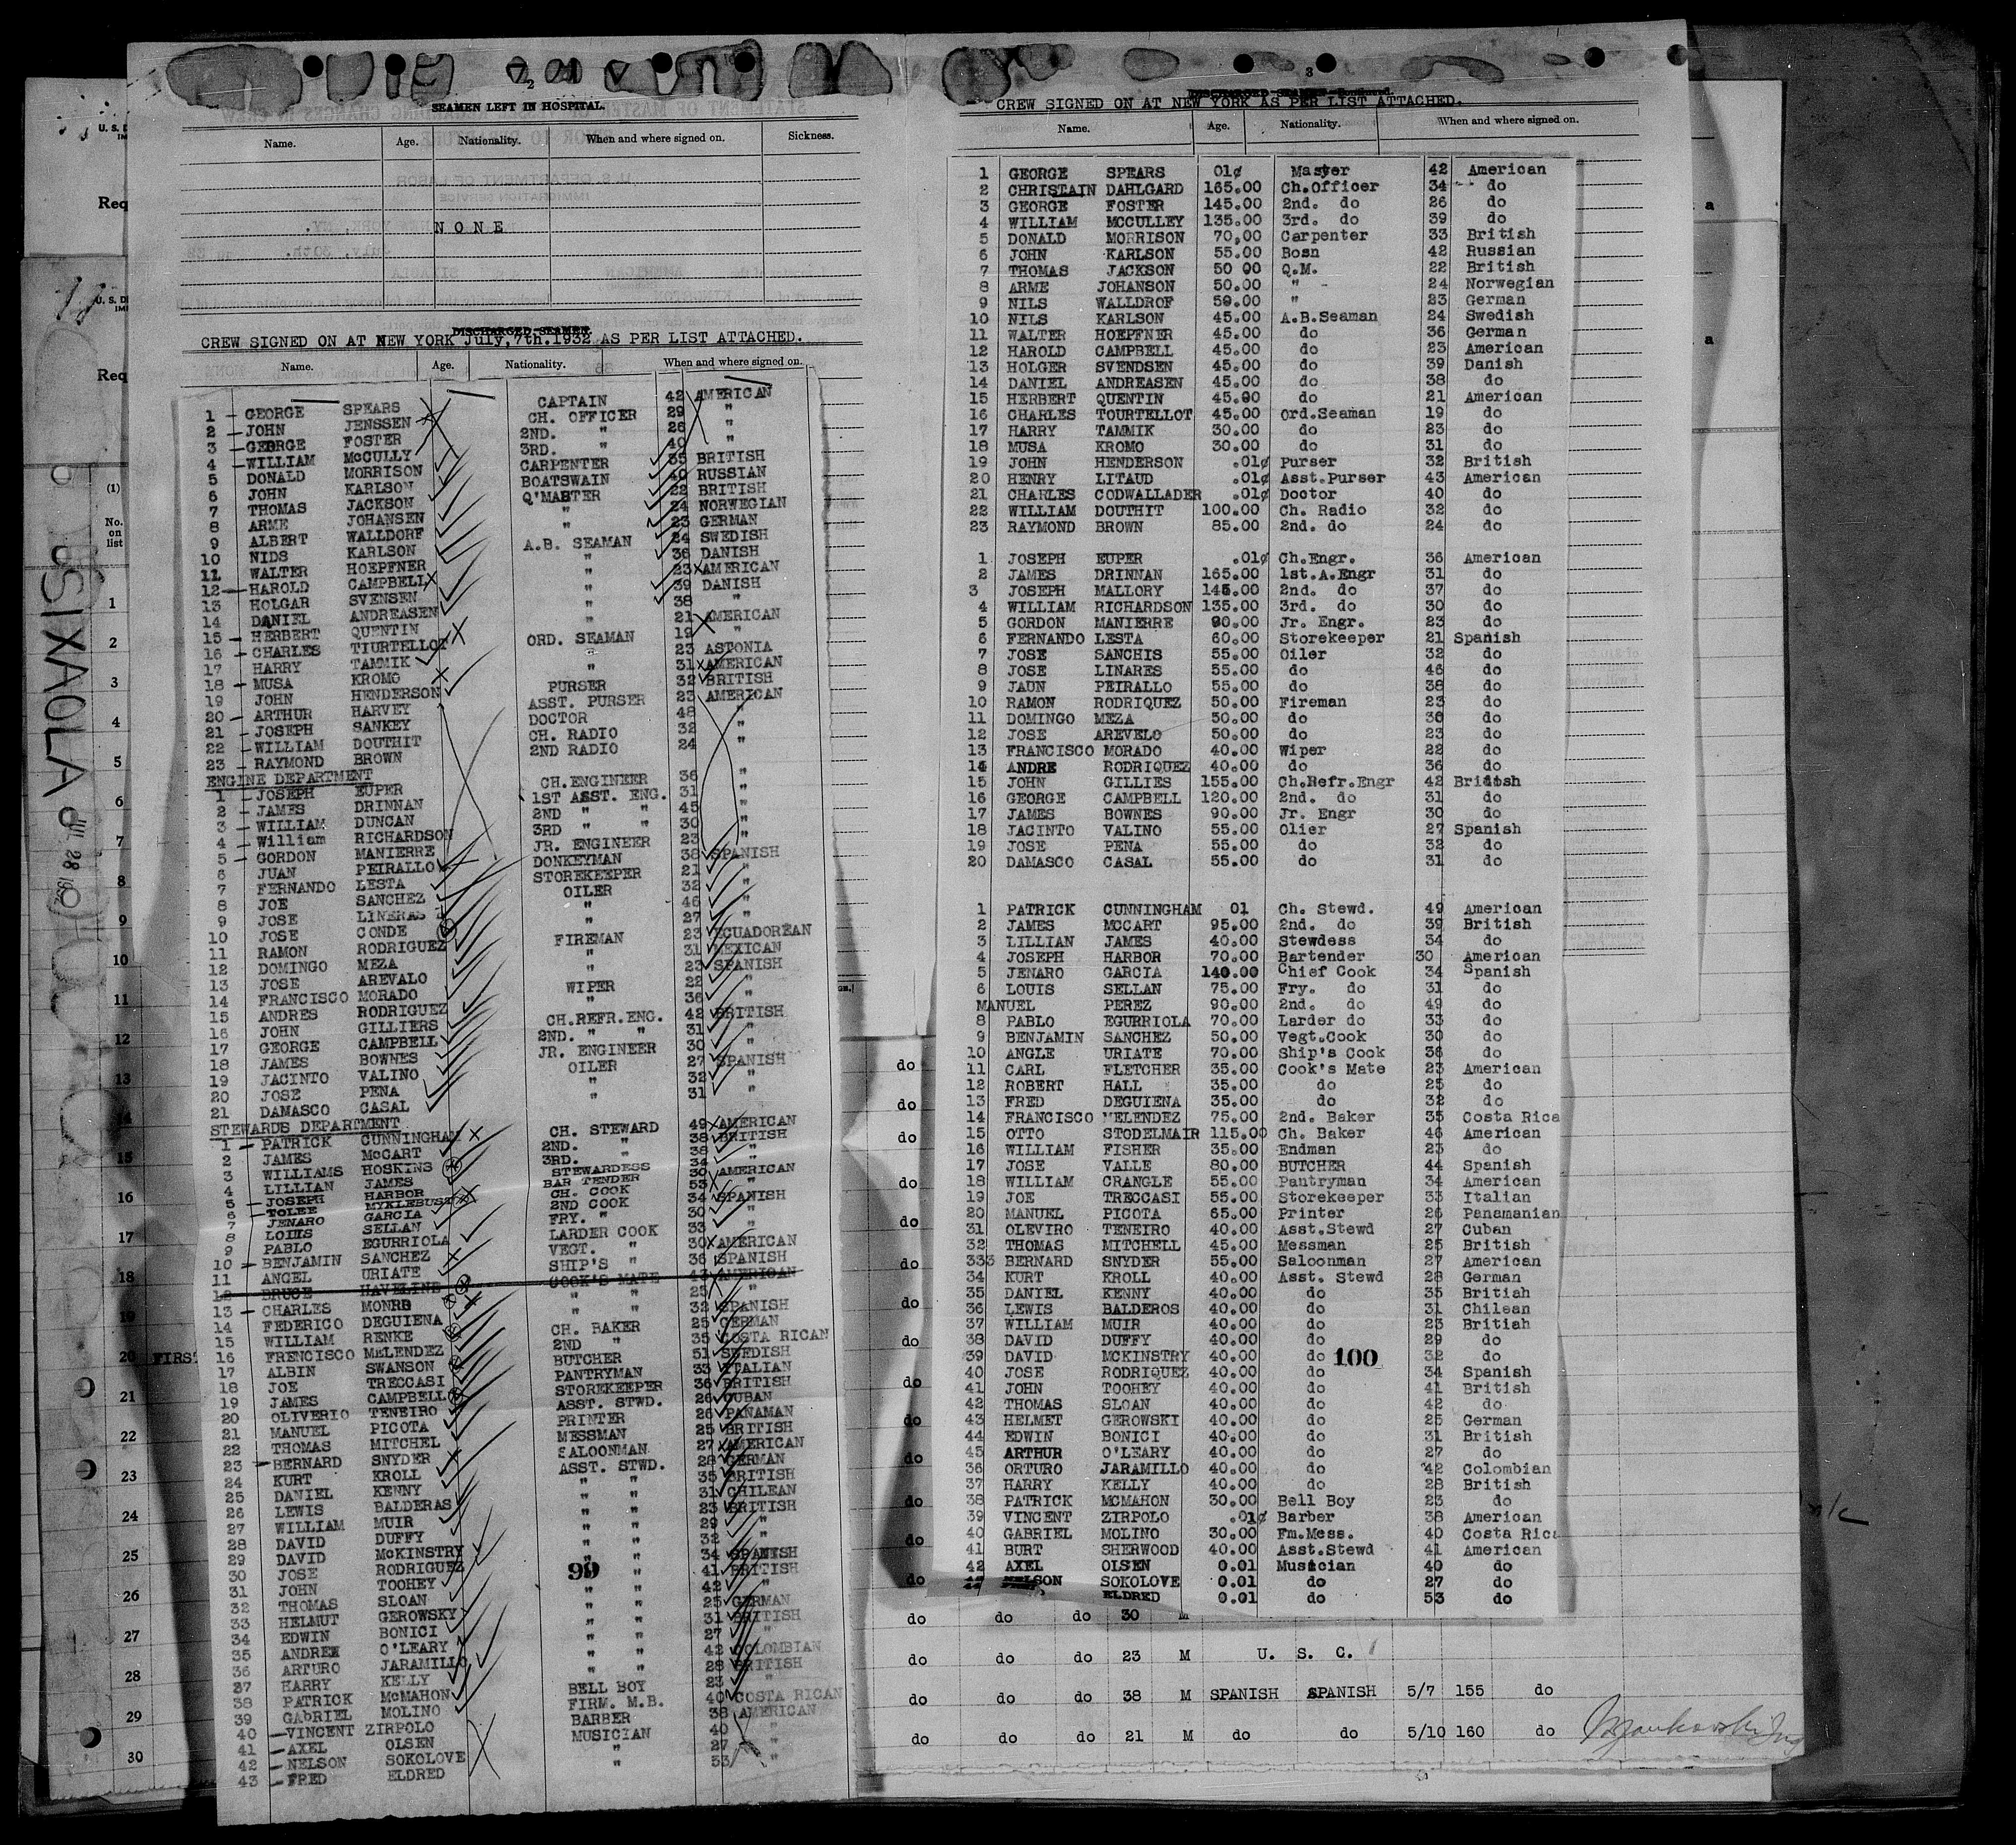 2
SEAMEN LEFT IN HOSPITAL.
Name. Age. Nationality. When and where signed on. Sickness.
N O N E
DISCHARGED SEAMEN.
CREW SIGNED ON AT NEW YORK July,7th.1932 AS PER LIST ATTACHED.
Name. Age. Nationality. When and where signed on.
1 - GEORGE SPEARS CAPTAIN 42 AMERICAN
2 - JOHN JENSSEN CH. OFFICER 29 "
3 - GEORGE FOSTER 2ND. " 26 "
4 - WILLIAM McCULLY 3RD. " 40 "
5 DONALD MORRISON CARPENTER 35 BRITISH
6 JOHN KARLSON BOATSWAIN 40 RUSSIAN
7 THOMAS JACKSON Q'MASTER 22 BRITISH
8 ARME JOHANSEN " 24 NORWEGIAN
9 ALBERT WALLDORF " 23 GERMAN
10 NIDS KARLSON A.B. SEAMAN 24 SWEDISH
11 WALTER HOEPFNER " 36 DANISH
12 - HAROLD CAMPBELL " 23 AMERICAN
13 HOLGAR SVENSEN " 39 DANISH
14 DANIEL ANDREASEN " 38 "
15 - HERBERT QUENTIN " 21 AMERICAN
16 - CHARLES TIURTELLOT ORD. SEAMAN 19 "
17 HARRY TAMMIK " 23 ASTONIA
18 - MUSA KROMO " 31 AMERICAN
19 JOHN HENDERSON PURSER 32 BRITISH
20 - ARTHUR HARVEY ASST. PURSER 23 AMERICAN
21 - JOSEPH SANKEY DOCTOR 48 "
22 - WILLIAM DOUTHIT CH. RADIO 32 "
23 - RAYMOND BROWN 2ND RADIO 24 "
ENGINE DEPARTMENT
1 - JOSEPH EUPER CH.ENGINEER 36 "
2 - JAMES DRINNAN 1ST ASST. ENG. 31 "
3 - WILLIAM DUNCAN 2ND " " 45 "
4 - William RICHARDSON 3RD " " 30 "
5 - GORDON MANIERRE JR. ENGINEER 23 "
6 JUAN PEIRALLO DONKEYMAN 38 SPANISH
7 FERNANDO LESTA STOREKEEPER 21 "
8 JOE SANCHEZ OILER 32 "
9 JOSE LINERAS " 46 "
10 JOSE CONDE " 27 "
11 RAMON RODRIGUEZ FIREMAN 23 ECUADOREAN
12 DOMINGO MEZA " 31 MEXICAN
13 JOSE AREVALO " 23 SPANISH
14 FRANCISCO MORADO WIPER 22 "
15 ANDRES RODRIGUEZ " 36 "
16 JOHN GILLIERS CH.REFR.ENG. 42 BRITISH
17 GEORGE CAMPBELL 2ND. " " 31 "
18 JAMES BOWNES JR. ENGINEER 30 "
19 JACINTO VALINO OILER 27 SPANISH
20 JOSE PENA " 32 "
21 DAMASCO CASAL " 31 "
STEWARDS DEPARTMENT
1 - PATRICK CUNNINGHAM CH. STEWARD 49 AMERICAN
2 JAMES McCART 2ND. " 38 BRITISH
3 WILLIAMS HOSKINS 3RD. " 38 "
4 LILLIAN JAMES STEWARDESS 34 "
5 - JOSEPH HARBOR BAR TENDER 30 AMERICAN
6 - TOLEE MYKLEBUST CH. COOK 53 "
7 JENARO GARCIA 2ND COOK 34 SPANISH
8 LOUIS SELLAN FRY. " 30 "
9 PABLO EGURRIOLA LARDER COOK 33 "
10 - BENJAMIN SANCHEZ VEGT. " 30 AMERICAN
11 ANGEL URIATE SHIP'S " 36 SPANISH
12 BRUCE HAVELINE COOK'S MATE 43 AMERICAN
13 - CHARLES MONRO " " 25 "
14 FEDERICO DEGUIENA " " 32 SPANISH
15 WILLIAM RENKE CH. BAKER 25 GERMAN
16 FRENCISCO MELENDEZ 2ND " 35 COSTA RICAN
17 ALBIN SWANSON BUTCHER 51 SWEDISH
18 JOE TRECCASI PANTRYMAN 33 ITALIAN
19 JAMES CAMPBELL STOREKEEPER 36 BRITISH
20 OLIVERIO TENEIRO ASST. STWD. 26 CUBAN
21 MANUEL PICOTA PRINTER 26 PANAMAN
22 THOMAS MITCHEL MESSMAN 25 BRITISH
23 - BERNARD SNYDER SALOONMAN 27 AMERICAN
24 KURT KROLL ASST. STWD. 28 GERMAN
25 DANIEL KENNY " " 35 BRITISH
26 LEWIS BALDERAS " " 31 CHILEAN
27 WILLIAM MUIR " " 23 BRITISH
28 DAVID DUFFY " " 29 "
29 DAVID McKINSTRY " " 32 "
30 JOSE RODRIGUEZ " " 34 SPANISH
31 JOHN TOOHEY 99 " 41 BRITISH
32 THOMAS SLOAN " " 42 "
33 HELMUT GEROWSKY " " 25 GERMAN
34 EDWIN BONICI " " 31 BRITISH
35 ANDREW O'LEARY " " 27 "
36 ARTURO JARAMILLO " " 42 COLOMBIAN
37 HARRY KELLY " " 28 BRITISH
38 PATRICK McMAHON BELL BOY 23 "
39 GABRIEL MOLINO FIRM. M.B. 40 COSTA RICAN
40 - VINCENT ZIRPOLO BARBER 38 AMERICAN
41 - AXEL OLSEN MUSICIAN 40 "
42 - NELSON SOKOLOVE " 27 "
43 - FRED ELDRED " 53 "
3
DISCHARGED SEAMEN-Continued.
CREW SIGNED ON AT NEW YORK AS PER LIST ATTACHED.
Name. Age. Nationality. When and where signed on.
1 GEORGE SPEARS 01¢ Master 42 American
2 CHRISTAIN DAHLGARD 165.00 Ch.Officer 34 do
3 GEORGE FOSTER 145.00 2nd. do 26 do
4 WILLIAM MCCULLEY 135.00 3rd. do 39 do
5 DONALD MORRISON 70,00 Carpenter 33 British
6 JOHN KARLSON 55.00 Bosn 42 Russian
7 THOMAS JACKSON 50 00 Q.M. 22 British
8 ARME JOHANSON 50.00 " 24 Norwegian
9 NILS WALLDROF 50.00 " 23 German
10 NILS KARLSON 45.00 A.B.Seaman 24 Swedish
11 WALTER HOEPFNER 45.00 do 36 German
12 HAROLD CAMPBELL 45.00 do 23 American
13 HOLGER SVENDSEN 45.00 do 39 Danish
14 DANIEL ANDREASEN 45.00 do 38 do
15 HERBERT QUENTIN 45.00 do 21 American
16 CHARLES TOURTELLOT 45.00 Ord.Seaman 19 do
17 HARRY TAMMIK 30.00 do 23 do
18 MUSA KROMO 30.00 do 31 do
19 JOHN HENDERSON .01¢ Purser 32 British
20 HENRY LITAUD .01¢ Asst.Purser 43 American
21 CHARLES CODWALLADER .01¢ Doctor 40 do
22 WILLIAM DOUTHIT 100.00 Ch. Radio 32 do
23 RAYMOND BROWN 85.00 2nd. do 24 do
1 JOSEPH EUPER .01¢ Ch.Engr. 36 American
2 JAMES DRINNAN 165.00 1st.A.Engr 31 do
3 JOSEPH MALLORY 145.00 2nd. do 37 do
4 WILLIAM RICHARDSON 135.00 3rd. do 30 do
5 GORDON MANIERRE 90.00 Jr. Engr. 23 do
6 FERNANDO LESTA 60.00 Storekeeper 21 Spanish
7 JOSE SANCHIS 55.00 Oiler 32 do
8 JOSE LINARES 55.00 do 46 do
9 JAUN PEIRALLO 55.00 do 38 do
10 RAMON RODRIQUEZ 50.00 Fireman 23 do
11 DOMINGO MEZA 50.00 do 30 do
12 JOSE AREVELO 50.00 do 23 do
13 FRANCISCO MORADO 40.00 Wiper 22 do
14 ANDRE RODRIQUEZ 40.00 do 36 do
15 JOHN GILLIES 155.00 Ch.Refr.Engr 42 British
16 GEORGE CAMPBELL 120.00 2nd. do 31 do
17 JAMES BOWNES 90.00 Jr. Engr 30 do
18 JACINTO VALINO 55.00 Olier 27 Spanish
19 JOSE PENA 55.00 do 32 do
20 DAMASCO CASAL 55.00 do 31 do
1 PATRICK CUNNINGHAM 01 Ch. Stewd. 49 American
2 JAMES MCCART 95.00 2nd. do 39 British
3 LILLIAN JAMES 40.00 Stewdess 34 do
4 JOSEPH HARBOR 70.00 Bartender 30 American
5 JENARO GARCIA 140.00 Chief Cook 34 Spanish
6 LOUIS SELLAN 75.00 Fry. do 31 do
MANUEL PEREZ 90.00 2nd. do 49 do
8 PABLO EGURRIOLA 70.00 Larder do 33 do
9 BENJAMIN SANCHEZ 50.00 Vegt.Cook 30 do
10 ANGLE URIATE 70.00 Ship's Cook 36 do
11 CARL FLETCHER 35.00 Cook's Mate 23 American
12 ROBERT HALL 35.00 do 25 do
13 FRED DEGUIENA 35.00 do 32 do
14 FRANCISCO MELENDEZ 75.00 2nd. Baker 35 Costa Rica
15 OTTO STODELMAIR 115.00 Ch. Baker 46 American
16 WILLIAM FISHER 35.00 Endman 23 do
17 JOSE VALLE 80.00 BUTCHER 44 Spanish
18 WILLIAM CRANGLE 55.00 Pantryman 34 American
19 JOE TRECCASI 55.00 Storekeeper 33 Italian
20 MANUEL PICOTA 65.00 Printer 26 Panamanian
31 OLEVIRO TENEIRO 40.00 Asst.Stewd 27 Cuban
32 THOMAS MITCHELL 45.00 Messman 25 British
333 BERNARD SNYDER 55.00 Saloonman 27 American
34 KURT KROLL 40.00 Asst. Stewd 28 German
35 DANIEL KENNY 40.00 do 35 British
36 LEWIS BALDEROS 40.00 do 31 Chilean
37 WILLIAM MUIR 40.00 do 23 British
38 DAVID DUFFY 40.00 do 29 do
39 DAVID MCKINSTRY 40.00 do 100 32 do
40 JOSE RODRIQUEZ 40.00 do 34 Spanish
41 JOHN TOOHEY 40.00 do 41 British
42 THOMAS SLOAN 40.00 do 42 do
43 HELMET GEROWSKI 40.00 do 25 German
44 EDWIN BONICI 40.00 do 31 British
45 ARTHUR O'LEARY 40.00 do 27 do
36 ORTURO JARAMILLO 40.00 do 42 Colombian
37 HARRY KELLY 40.00 do 28 British
38 PATRICK MCMAHON 30.00 Bell Boy 23 do
39 VINCENT ZIRPOLO .01¢ Barber 38 American
40 GABRIEL MOLINO 30.00 Fm.Mess. 40 Costa Rica
41 BURT SHERWOOD 40.00 Asst.Stewd 41 American
42 AXEL OLSEN 0.01 Musician 40 do
NELSON SOKOLOVE 0.01 do 27 do
ELDRED 0.01 do 53 do
do do do 30 M
do do do 23 M U. S. C.
do do do 38 M SPANISH SPANISH 5/7 155 do
do do do 21 M do do 5/10 160 do
U. S. D
Req
U. S. D
Req
(1)
No. on list
1
2
3
4
5
6
7
8
9
10
11
12
13
14
15
16
17
18
19
20 FIRST
21
22
23
24
25
26
27
28
29
30
SIXAOLA
JUL 28 1932
do
do
do
do
do
do
do
do
do
do
do
do
do
do